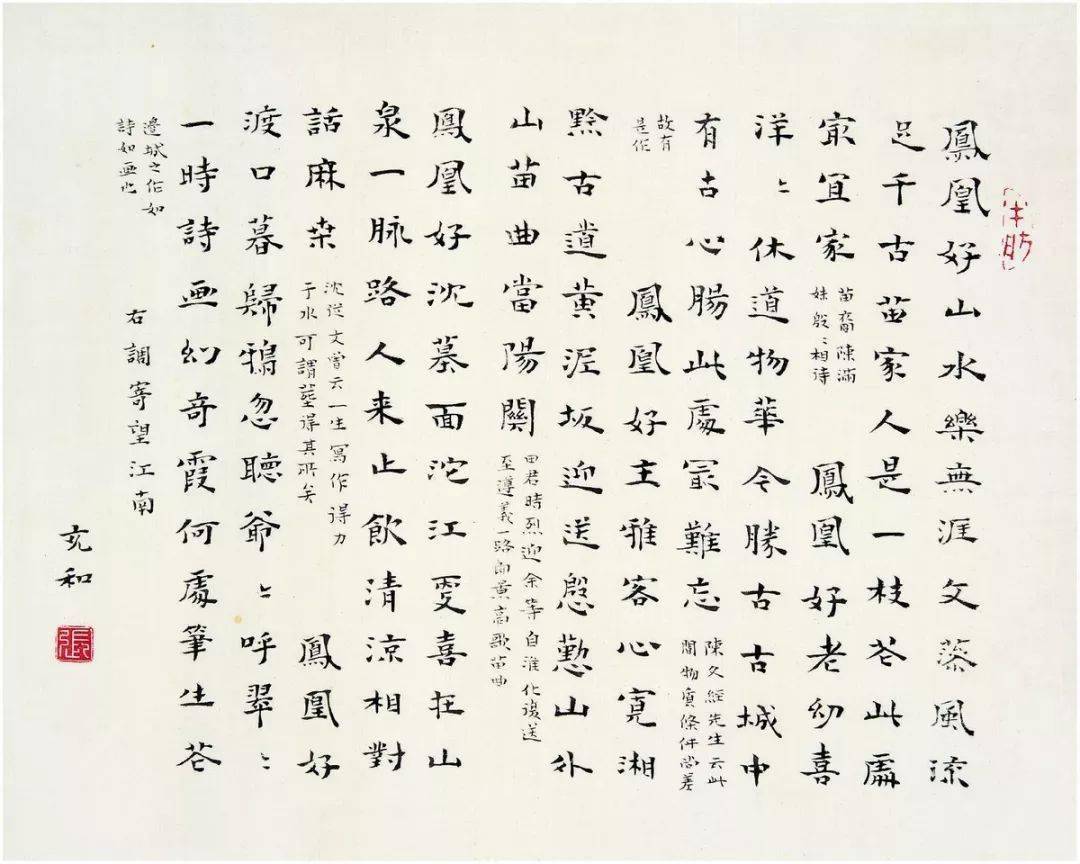 鳳凰好山水樂無涯文藻風流
足千古苗家人是一枝花此處
最宜家
苗裔陳滿
妹殷〻相待
鳳凰好老幼喜
洋〻休道物華今勝古古城中
有古心腸此處最難忘
陳文經先生云此
間物質條件尚差
故有
是作
鳳凰好主雅客心寬湘
黔古道黄泥坂迎送慇懃山外
山苗曲當陽關
田君時烈迎余等自淮化復送
至遵義一路高歌苗曲
鳳凰好沈墓面沱江更喜在山
泉一脉路人来止飲清涼相對
話麻桑
沈从文曾云一生寫作得力
于水可謂塟得其所矣
鳳凰好
渡口暮歸鴉忽聽爺〻呼翠〻
一時詩画幻奇霞何處筆生花
邊城之作如
詩如画也
右調寄望江南
充和
張